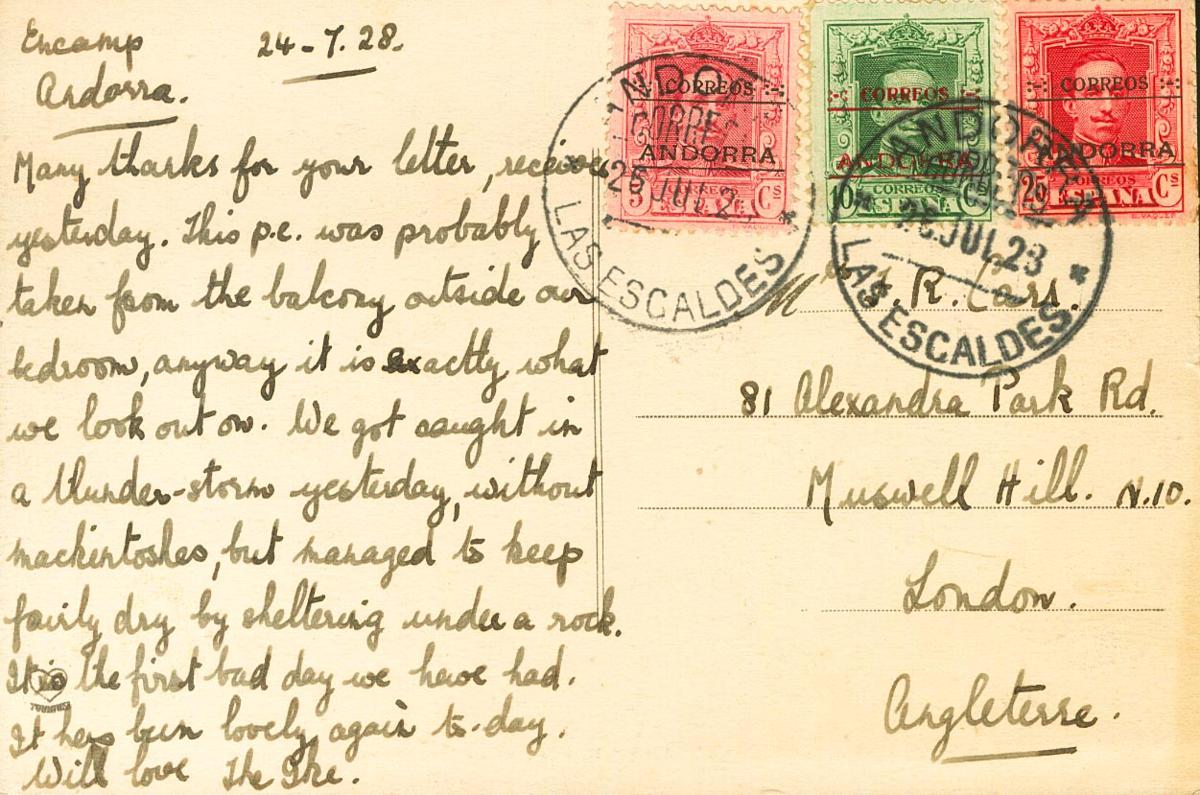 Encamp 24-7.28.
Andorra.
Many thanks for your letter, received
yesterday. This p.c. was probably
taken from the balcony outside our
bedroom, anyway it is exactly what
we look out on. We got caught in
a thunder-storm yesterday, without
mackintoshes, but managed to keep
fairly dry by sheltering under a rock.
It is the first bad day we have had.
It has been lovely again to-day.
With love
CORREOS
ANDORRA
5 CORREOS Cs
CORREOS
ANDORRA
10 CORREOS Cs
ESPAÑA
CORREOS
ANDORRA
25 CORREOS Cs
ESPAÑA
ANDORRA
CORREOS
JUL
LAS ESCALDES
ANDORRA
CORREOS
JUL 28
LAS ESCALDES
R.
81 Alexandra Park Rd.
Muswell Hill. N.10.
London.
Angleterre.